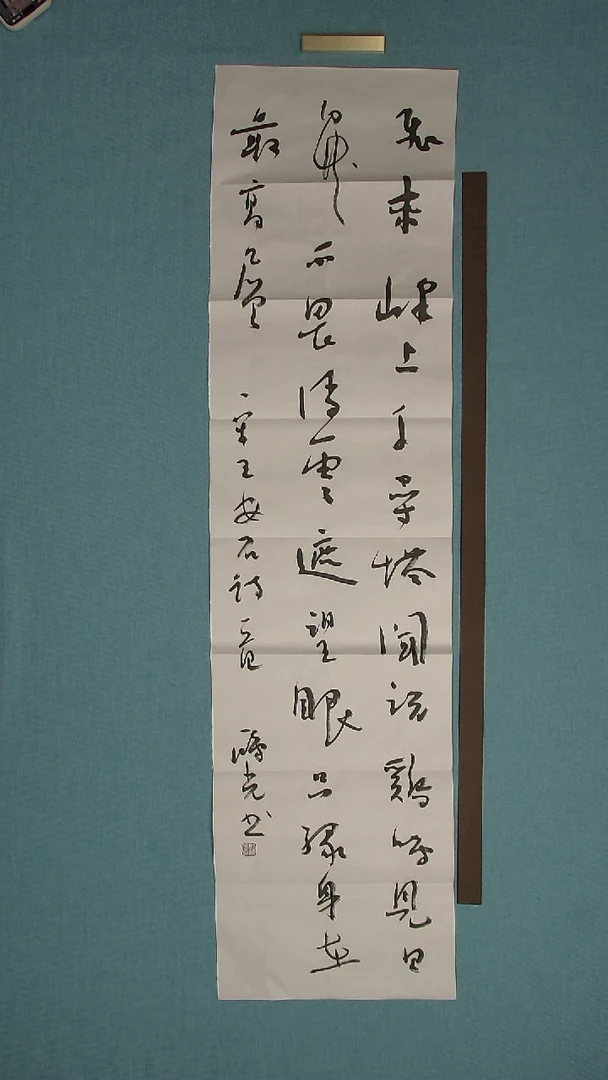 飛來峰上千尋塔聞説鷄鳴見日
昇不畏浮雲遮望眼只緣身在
最高層 宋王安石詩一首 光书